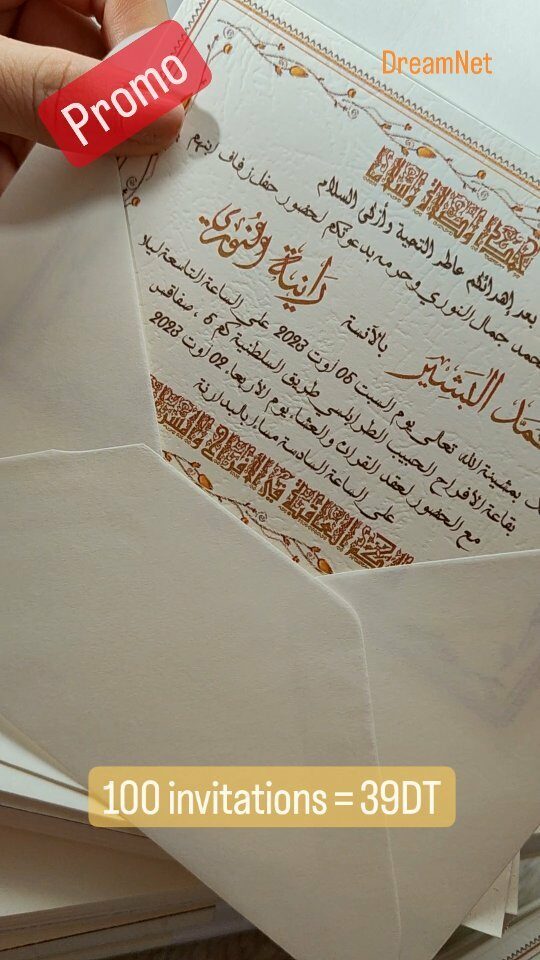 Promo
DreamNet
بعد إهدائكم عاطر التحية وأزكى السلام
محمد جمال النوري وحرمه بدعوتكم لحضور حفل زفاف ابنهم
محمد البشير بالآنسة رانية
بمشيئة الله تعالى يوم السبت 05 أوت 2023 على الساعة التاسعة ليلا
بقاعة الأفراح الحبيب الطرابلسي طريق السلطنية كم 5 ، صفاقس
مع الحضور لعقد القران والعشاء يوم الأربعاء 02 أوت 2023
على الساعة السادسة مساء بالبدارنة
100 invitations = 39DT